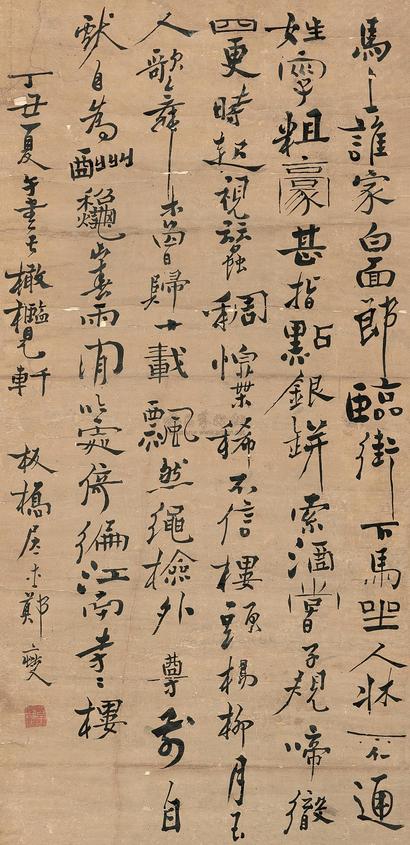 馬上誰家白面郎臨街下馬坐人牀不通
姓字粗豪甚指點銀缾索酒嘗子規啼徹
四更時起視蠶稠怕葉稀不信樓頭楊柳月玉
人歌舞未曾歸十載飄然繩檢外尊前自
獻自為酬龝山春雨閒吟處倚徧江南寺〻樓
丁丑夏午書于橄欖軒 板橋居士鄭燮